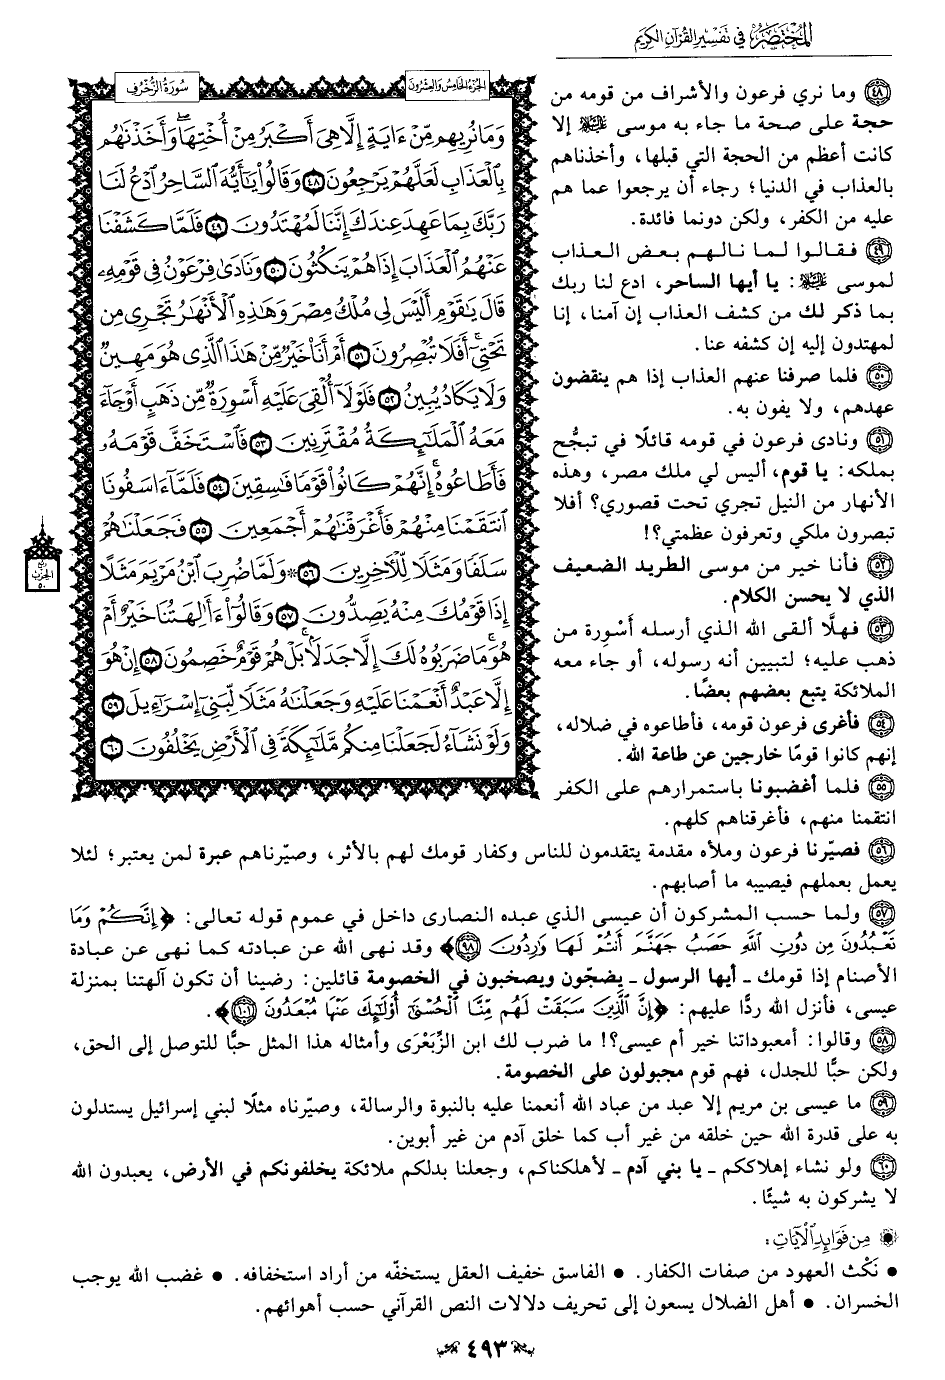 المختصر في تفسير القرآن الكريم
الجزء الخامس والعشرون
سورة الزخرف
وَمَا نُرِيهِم مِّنْ ءَايَةٍ إِلَّا هِيَ أَكْبَرُ مِنْ أُخْتِهَاۖ وَأَخَذْنَٰهُم
بِٱلْعَذَابِ لَعَلَّهُمْ يَرْجِعُونَ ٤٨ وَقَالُوا۟ يَٰٓأَيُّهَ ٱلسَّاحِرُ ٱدْعُ لَنَا
رَبَّكَ بِمَا عَهِدَ عِندَكَ إِنَّنَا لَمُهْتَدُونَ ٤٩ فَلَمَّا كَشَفْنَا
عَنْهُمُ ٱلْعَذَابَ إِذَا هُمْ يَنكُثُونَ ٥٠ وَنَادَىٰ فِرْعَوْنُ فِي قَوْمِهِۦ
قَالَ يَٰقَوْمِ أَلَيْسَ لِي مُلْكُ مِصْرَ وَهَٰذِهِ ٱلْأَنْهَٰرُ تَجْرِي مِن
تَحْتِيٓۖ أَفَلَا تُبْصِرُونَ ٥١ أَمْ أَنَا۠ خَيْرٌ مِّنْ هَٰذَا ٱلَّذِي هُوَ مَهِينٌ
وَلَا يَكَادُ يُبِينُ ٥٢ فَلَوْلَآ أُلْقِيَ عَلَيْهِ أَسْوِرَةٌ مِّن ذَهَبٍ أَوْ جَآءَ
مَعَهُ ٱلْمَلَٰٓئِكَةُ مُقْتَرِنِينَ ٥٣ فَٱسْتَخَفَّ قَوْمَهُۥ
فَأَطَاعُوهُۚ إِنَّهُمْ كَانُوا۟ قَوْمًا فَٰسِقِينَ ٥٤ فَلَمَّآ ءَاسَفُونَا
ٱنتَقَمْنَا مِنْهُمْ فَأَغْرَقْنَٰهُمْ أَجْمَعِينَ ٥٥ فَجَعَلْنَٰهُمْ
سَلَفًا وَمَثَلًا لِّلْءَاخِرِينَ ٥٦ ۞ وَلَمَّا ضُرِبَ ٱبْنُ مَرْيَمَ مَثَلًا
إِذَا قَوْمُكَ مِنْهُ يَصِدُّونَ ٥٧ وَقَالُوٓا۟ ءَأَٰلِهَتُنَا خَيْرٌ أَمْ
هُوَۚ مَا ضَرَبُوهُ لَكَ إِلَّا جَدَلًۢاۚ بَلْ هُمْ قَوْمٌ خَصِمُونَ ٥٨ إِنْ هُوَ
إِلَّا عَبْدٌ أَنْعَمْنَا عَلَيْهِ وَجَعَلْنَٰهُ مَثَلًا لِّبَنِيٓ إِسْرَٰٓءِيلَ ٥٩
وَلَوْ نَشَآءُ لَجَعَلْنَا مِنكُم مَّلَٰٓئِكَةً فِي ٱلْأَرْضِ يَخْلُفُونَ ٦٠
ربع
الحزب
٥٠
٤٨ وما نري فرعون والأشراف من قومه من
حجة على صحة ما جاء به موسى ﷺ إلا
كانت أعظم من الحجة التي قبلها، وأخذناهم
بالعذاب في الدنيا؛ رجاء أن يرجعوا عما هم
عليه من الكفر، ولكن دونما فائدة.
٤٩ فقالوا لما نالهم بعض العذاب
لموسى ﷺ: يا أيها الساحر، ادع لنا ربك
بما ذكر لك من كشف العذاب إن آمنا، إنا
لمهتدون إليه إن كشفه عنا.
٥٠ فلما صرفنا عنهم العذاب إذا هم ينقضون
عهدهم، ولا يفون به.
٥١ ونادى فرعون في قومه قائلًا في تبجُّح
بملكه: يا قوم، أليس لي ملك مصر، وهذه
الأنهار من النيل تجري تحت قصوري؟ أفلا
تبصرون ملكي وتعرفون عظمتي؟!
٥٢ فأنا خير من موسى الطريد الضعيف
الذي لا يحسن الكلام.
٥٣ فهلَّا ألقى الله الذي أرسله أَسْورة من
ذهب عليه؛ لتبيين أنه رسوله، أو جاء معه
الملائكة يتبع بعضهم بعضًا.
٥٤ فأغرى فرعون قومه، فأطاعوه في ضلاله،
إنهم كانوا قومًا خارجين عن طاعة الله.
٥٥ فلما أغضبونا باستمرارهم على الكفر
انتقمنا منهم، فأغرقناهم كلهم.
٥٦ فصيّرنا فرعون وملأه مقدمة يتقدمون للناس وكفار قومك لهم بالأثر، وصيّرناهم عبرة لمن يعتبر؛ لئلا
يعمل بعملهم فيصيبه ما أصابهم.
٥٧ ولما حسب المشركون أن عيسى الذي عبده النصارى داخل في عموم قوله تعالى: ﴿إِنَّكُمْ وَمَا
تَعْبُدُونَ مِن دُونِ ٱللَّهِ حَصَبُ جَهَنَّمَ أَنتُمْ لَهَا وَٰرِدُونَ ٩٨﴾ وقد نهى الله عن عبادته كما نهى عن عبادة
الأصنام إذا قومك ـ أيها الرسول ـ يضجّون ويصخبون في الخصومة قائلين: رضينا أن تكون آلهتنا بمنزلة
عيسى، فأنزل الله ردًّا عليهم: ﴿إِنَّ ٱلَّذِينَ سَبَقَتْ لَهُم مِّنَّا ٱلْحُسْنَىٰٓ أُو۟لَٰٓئِكَ عَنْهَا مُبْعَدُونَ ١٠١﴾.
٥٨ وقالوا: أمعبوداتنا خير أم عيسى؟! ما ضرب لك ابن الزِّبَعْرَى وأمثاله هذا المثل حبًّا للتوصل إلى الحق،
ولكن حبًّا للجدل، فهم قوم مجبولون على الخصومة.
٥٩ ما عيسى بن مريم إلا عبد من عباد الله أنعمنا عليه بالنبوة والرسالة، وصيّرناه مثلًا لبني إسرائيل يستدلون
به على قدرة الله حين خلقه من غير أب كما خلق آدم من غير أبوين.
٦٠ ولو نشاء إهلاككم ـ يا بني آدم ـ لأهلكناكم، وجعلنا بدلكم ملائكة يخلفونكم في الأرض، يعبدون الله
لا يشركون به شيئًا.
من فوائد الآيات:
• نَكْث العهود من صفات الكفار. • الفاسق خفيف العقل يستخفّه من أراد استخفافه. • غضب الله يوجب
الخسران. • أهل الضلال يسعون إلى تحريف دلالات النص القرآني حسب أهوائهم.
٤٩٣